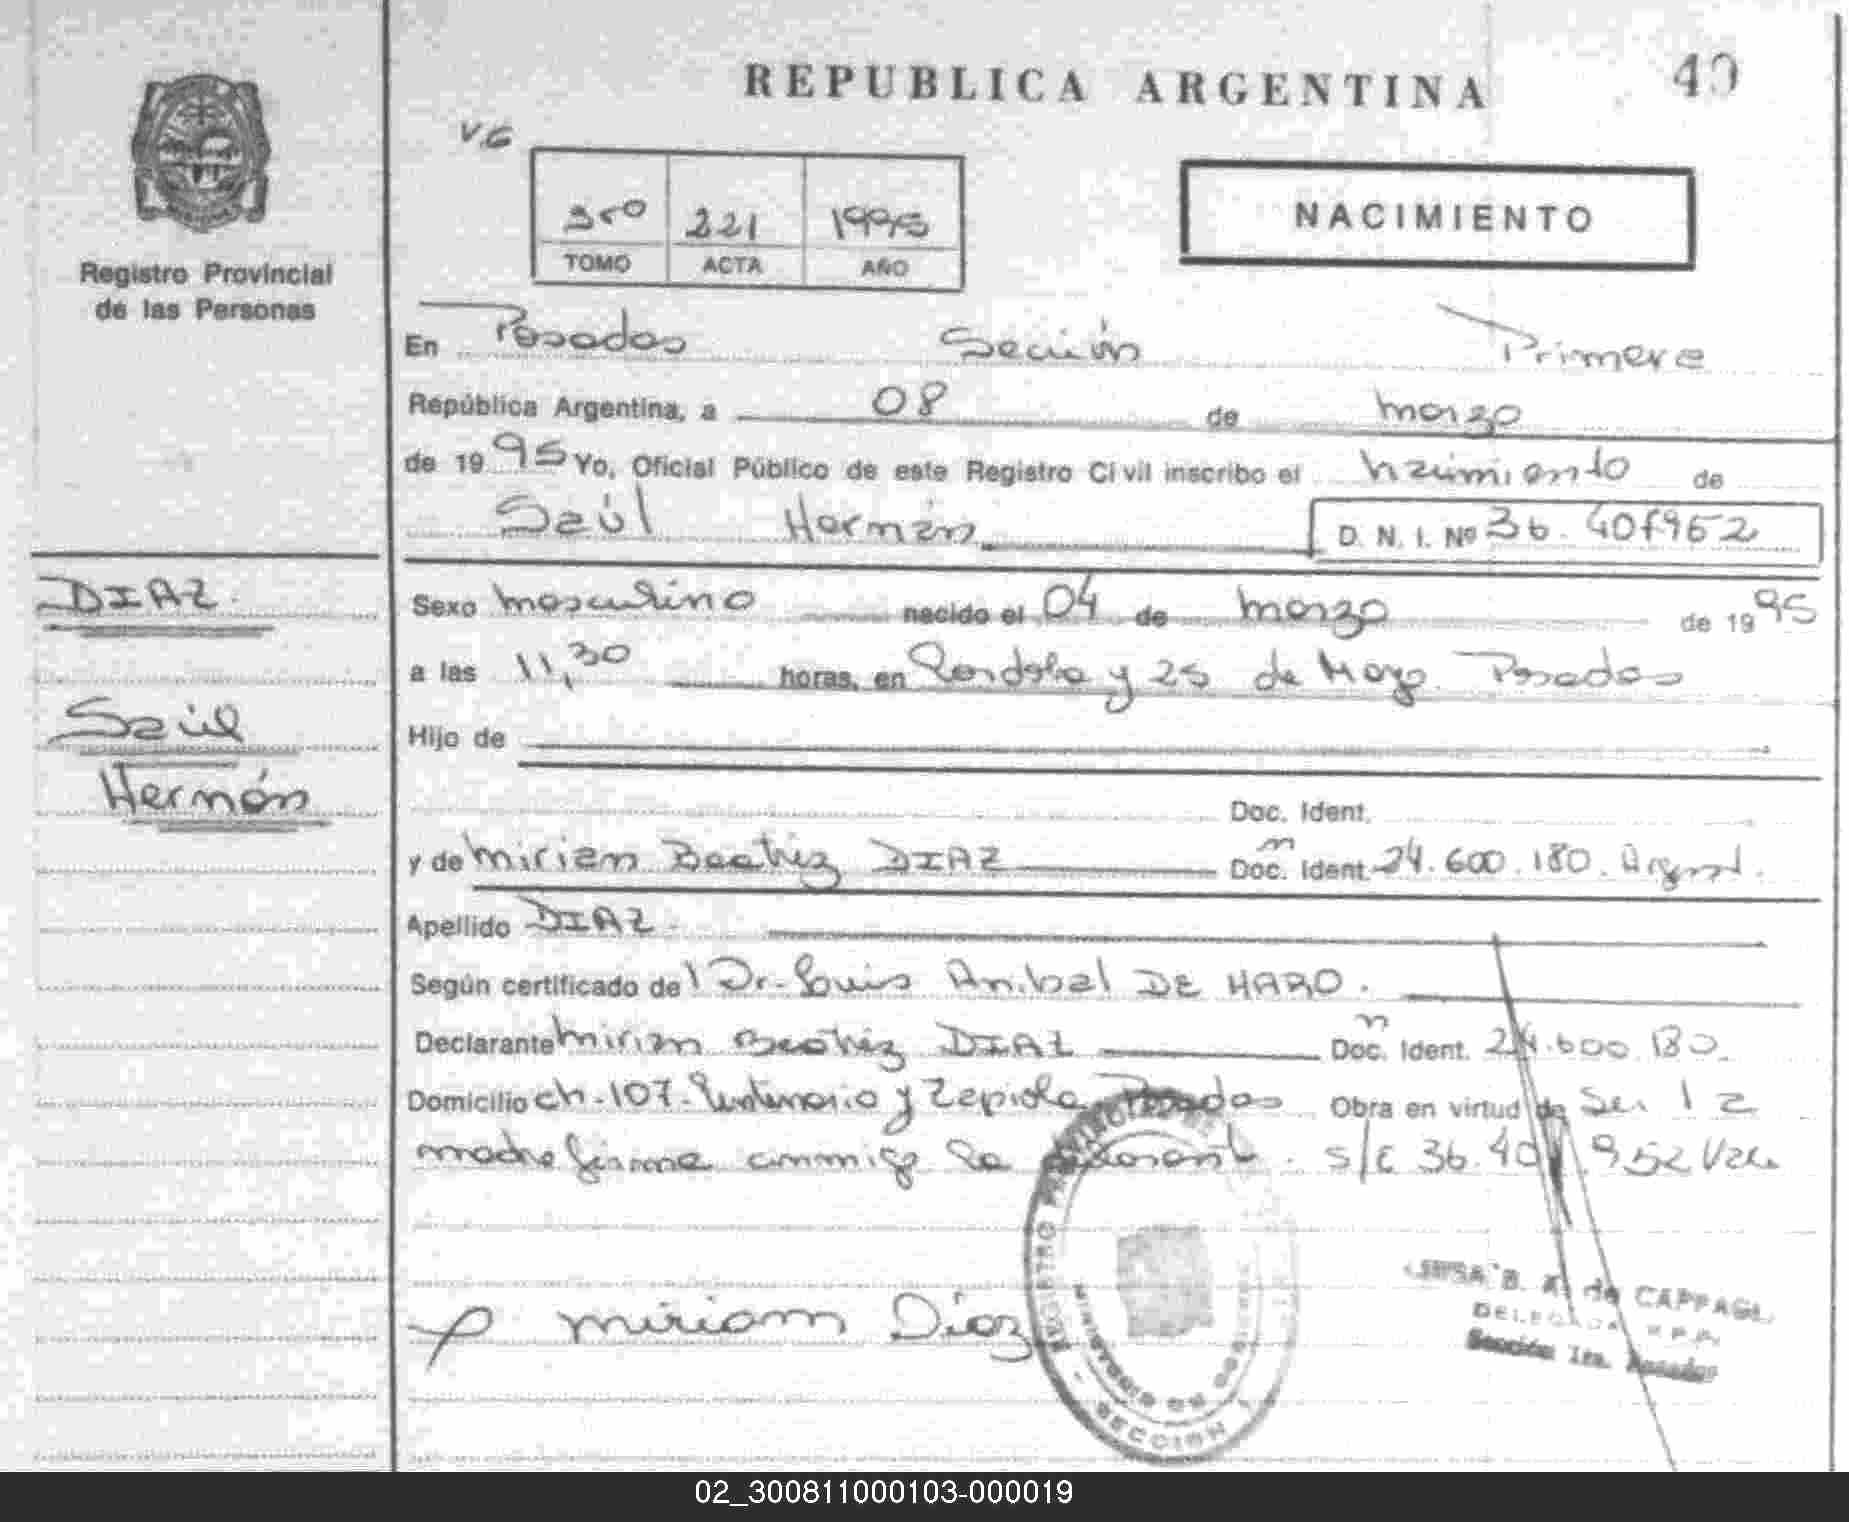 REPUBLICA ARGENTINA
40
Registro Provincial
de las Personas
V.G
3ro 221 1995
TOMO ACTA AÑO
NACIMIENTO
En Posadas Sección Primera
República Argentina, a 08 de marzo
de 1995 Yo, Oficial Público de este Registro Civil inscribo el nacimiento de
Saúl Hernán D. N. I. Nº 36.407952
DIAZ.
Saúl
Hernán
Sexo masculino nacido el 04 de marzo de 1995
a las 11,30 horas, en Córdoba y 25 de Mayo Posadas
Hijo de
Doc. Ident.
y de Mirian Beatriz DIAZ Doc. Ident. 24.600.180. Argent.
Apellido DIAZ.
Según certificado del Dr. Luis Anibal DE HARO.
Declarante Mirian Beatriz DIAZ Doc. Ident. 24.600.180.
Domicilio ch. 107. Centenario y Zapiola Posadas Obra en virtud de Ser l a
madre firma conmigo la s/c 36.407.952 Vale
miriam Díaz
REGISTRO PROVINCIAL DE LAS
MINISTERIO DE GOBIERNO
SECCION 1
B. A. de CAPPAGLI
DELEGADA R.P.P.
Sección 1ra. Posadas
02_300811000103-000019